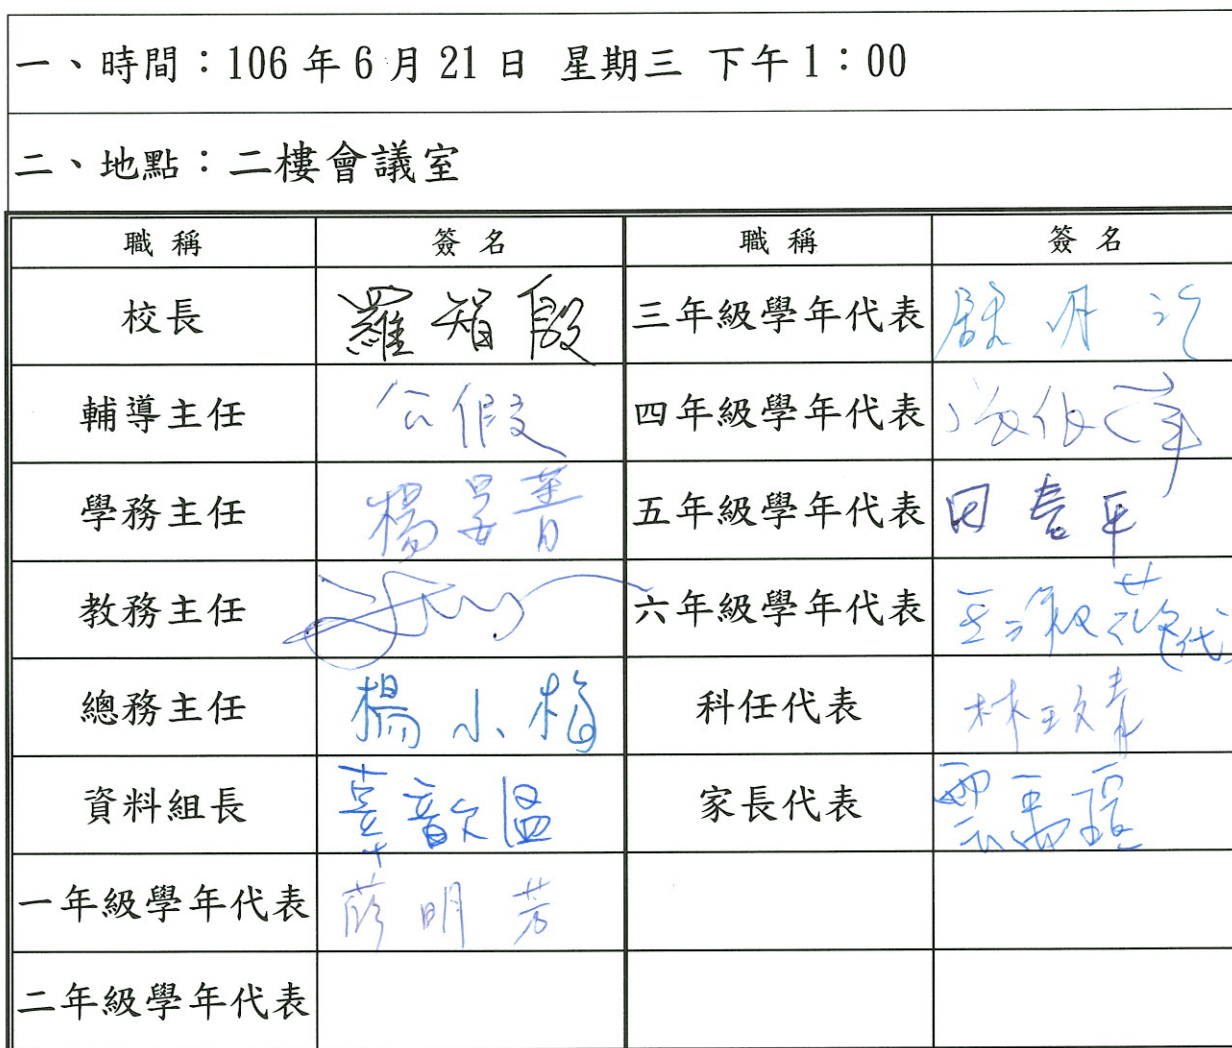 一、時間：106年6月21日 星期三 下午1：00
二、地點：二樓會議室
職稱 簽名 職稱 簽名
校長 羅智殷 三年級學年代表
輔導主任 公假 四年級學年代表
學務主任 楊晏菁 五年級學年代表
教務主任 六年級學年代表
總務主任 楊小梅 科任代表 林玫青
資料組長 辜歆溫 家長代表
一年級學年代表 薛明芳
二年級學年代表